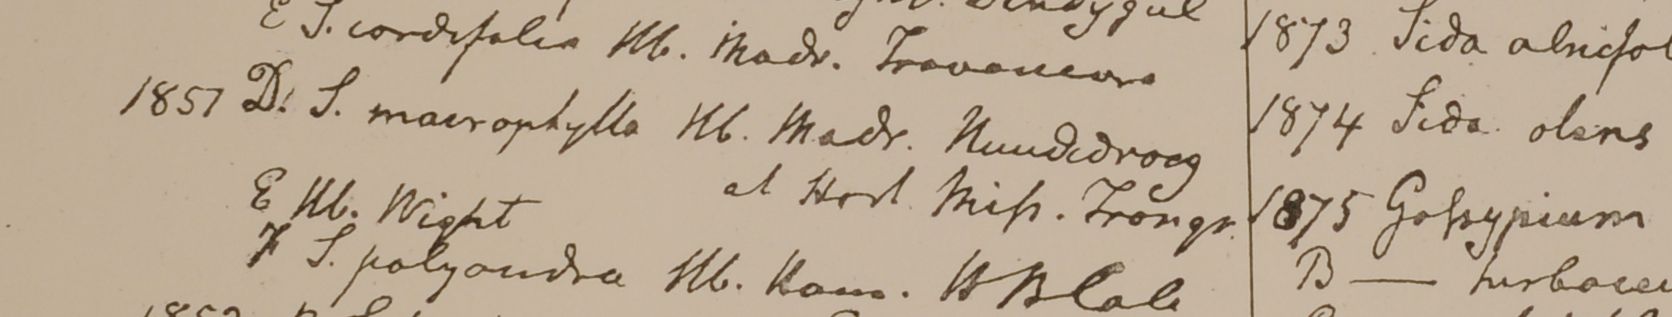 Dindygul
E S. cordifolia Hb. Madr. Travancora
1851 D. S. macrophylla Hb. Madr. Nundidroog
et Hort Miss. Trangr.
E Hb. Wight
F S. polyandra Hb. Ham. H B Calc
1852
1873 Sida alnifol
1874 Sida olens
1875 Gossypium
B — herbaceu